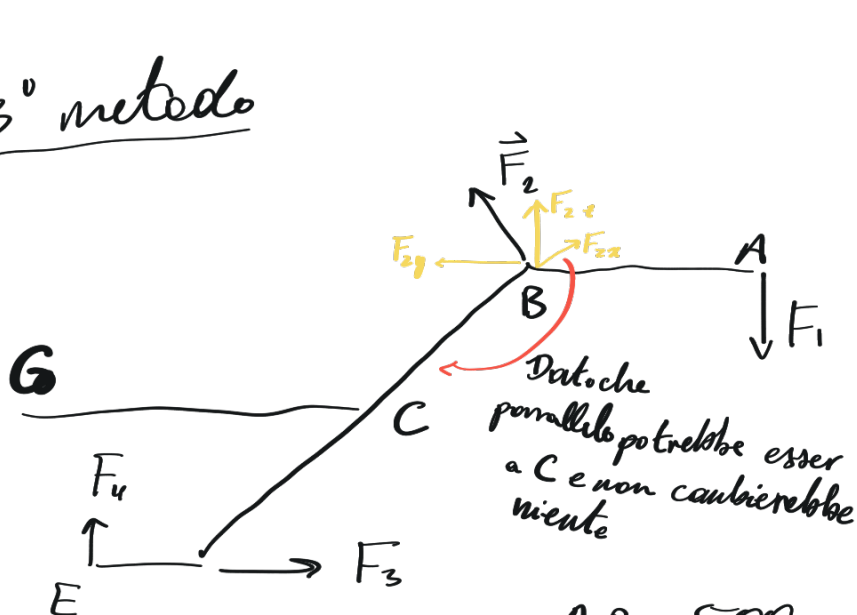 3° metodo
F₂
F₂z
F₂y
F₂x
A
B
F₁
G
Dato che
parallelo potrebbe esser
C
a C e non caubierebbe
niente
F₄
F₃
E